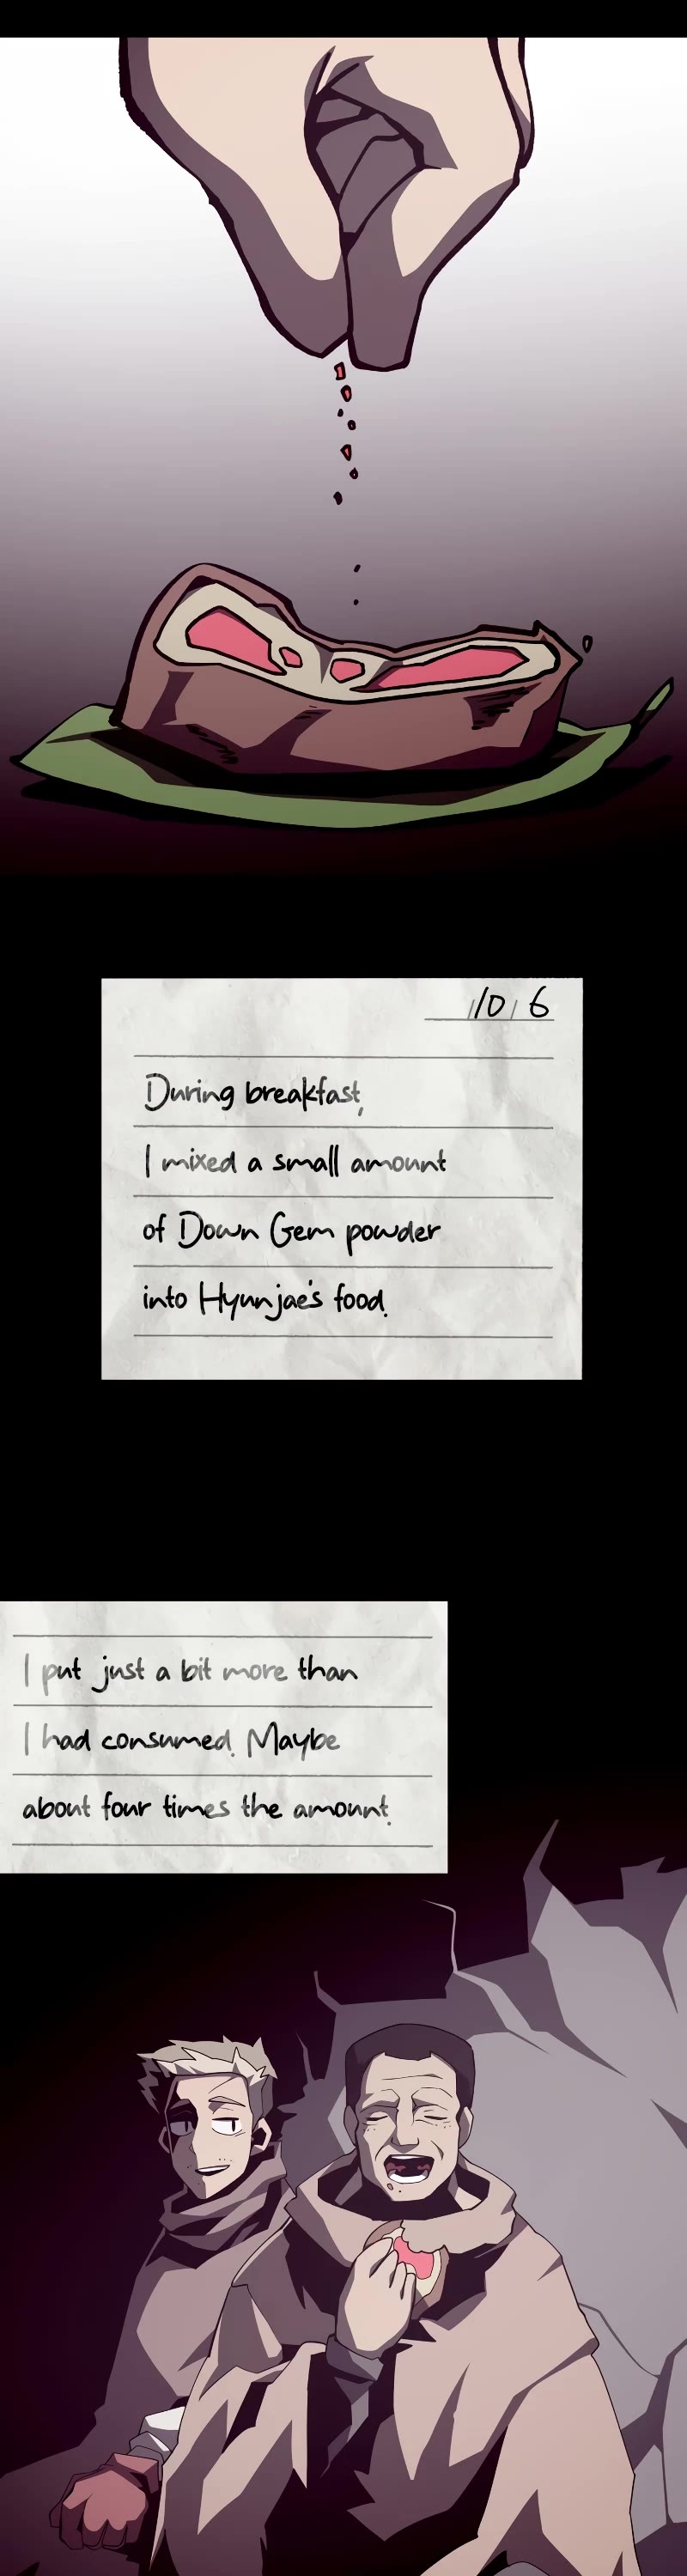 10 / 6
During breakfast,
I mixed a small amount
of Down Gem powder
into Hyunjae's food.
I put just a bit more than
I had consumed. Maybe
about four times the amount.